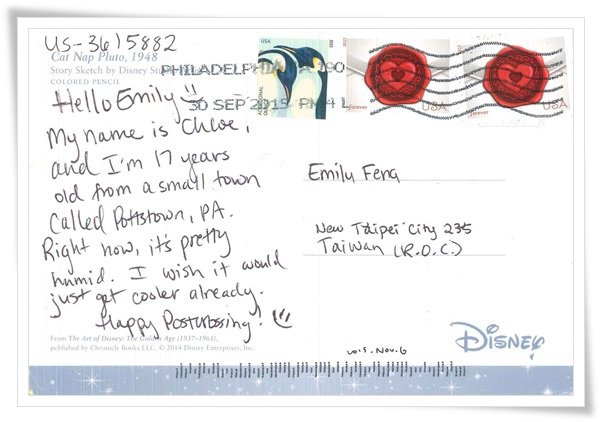 US-3615882
Cat Nap Pluto, 1948
Story Sketch by Disney
COLORED PENCIL
Hello Emily
My name is Chloe,
and I'm 17 years
old from a small town
called Pottstown, PA.
Right now, it's pretty
humid. I wish it would
just get cooler already.
Happy Postcrossing!
From The Art of Disney: The Golden Age (1937–1961),
published by Chronicle Books LLC. © 2014 Disney Enterprises, Inc.
USA
2015
PHILADELPHIA
30 SEP 2015 PM 4 L
forever
USA
forever
USA
Emily Feng
New Taipei City 235
Taiwan (R.O.C.)
DISNEY